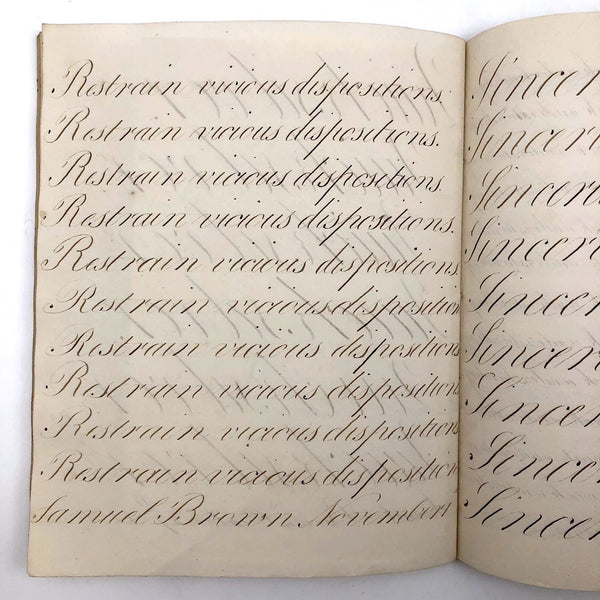 Restrain vicious dispositions.
Restrain vicious dispositions.
Restrain vicious dispositions.
Restrain vicious dispositions.
Restrain vicious dispositions.
Restrain vicious disposition
Restrain vicious disposition
Restrain vicious disposition
Restrain vicious disposition
Restrain vicious disposition
Samuel Brown November
Sincer
Sinceri
Sinceri
Sinceri
Sincer
Sincer
Sincer
Sincer
Sincer